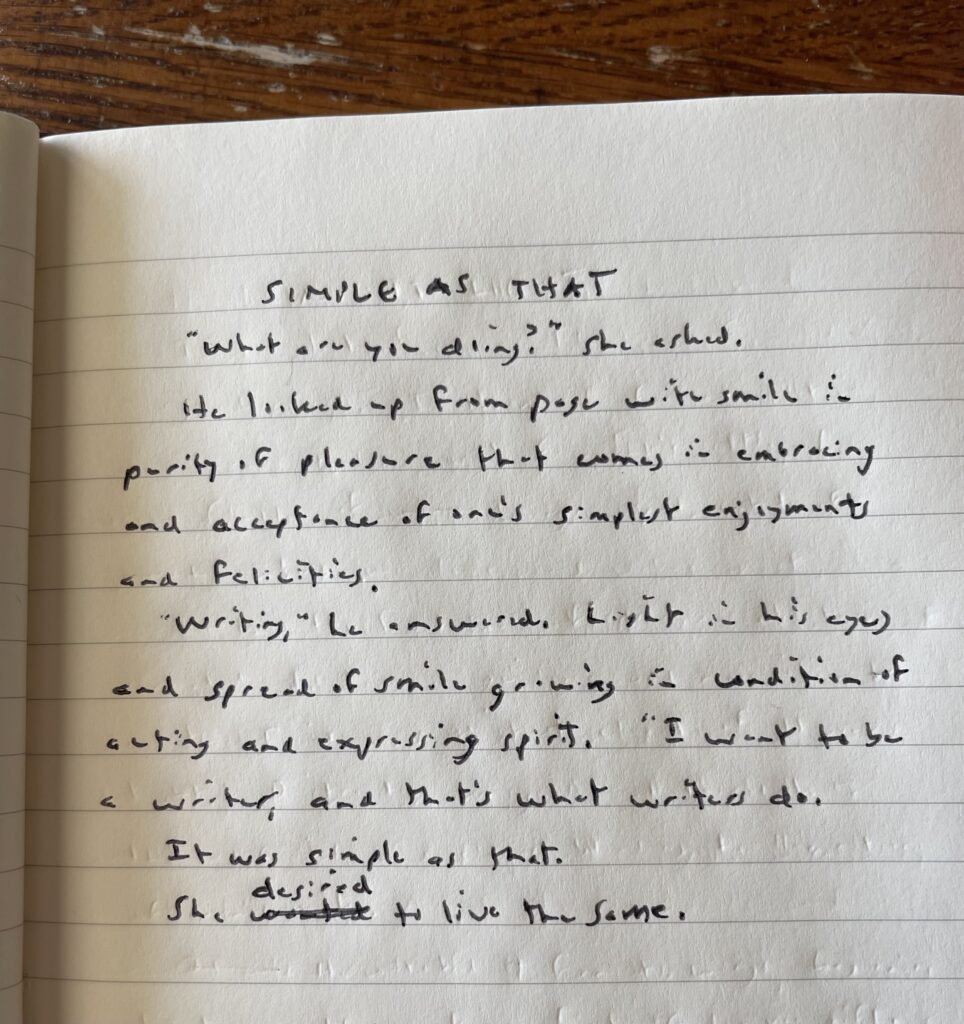 SIMPLE AS THAT
"What are you doing?" she asked.
He looked up from page with smile in
purity of pleasure that comes in embracing
and acceptance of one's simplest enjoyments
and felicities.
"Writing," he answered. Light in his eyes
and spread of smile growing in condition of
acting and expressing spirit. "I want to be
a writer, and that's what writers do.
It was simple as that.
desired
She wanted to live the same.